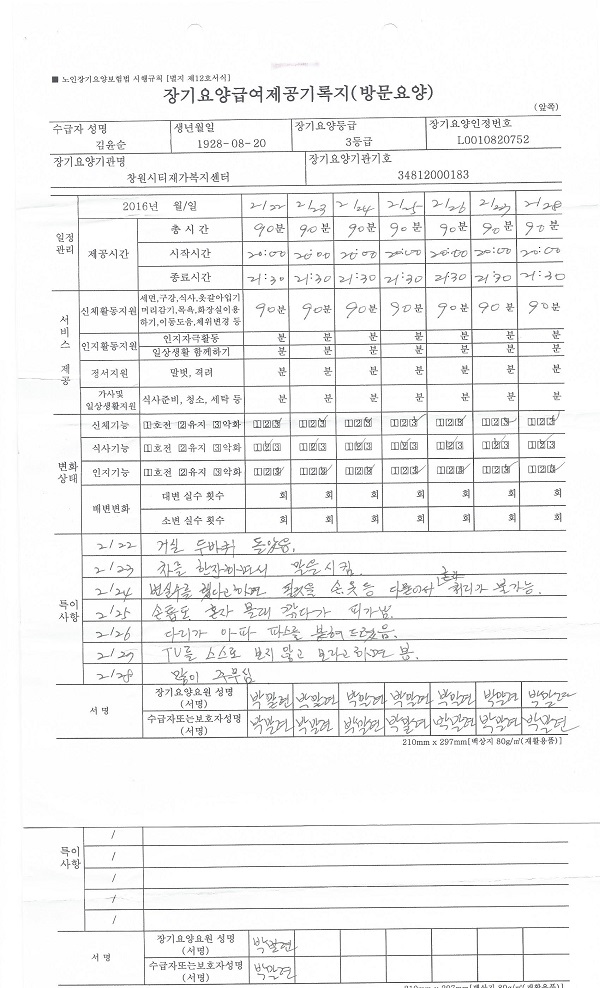 ■ 노인장기요양보험법 시행규칙 [별지 제12호서식]
장기요양급여제공기록지(방문요양)
(앞쪽)
수급자 성명 생년월일 장기요양등급 장기요양인정번호
김윤순 1928-08-20 3등급 L0010820752
장기요양기관명 장기요양기관기호
창원시티재가복지센터 34812000183
일정관리 2016년 월/일 2/22 2/23 2/24 2/25 2/26 2/27 2/28
제공시간 총 시 간 90분 90분 90분 90분 90분 90분 90분
시작시간 20:00 20:00 20:00 20:00 20:00 20:00 20:00
종료시간 21:30 21:30 21:30 21:30 21:30 21:30 21:30
서비스 제공
신체활동지원 세면,구강,식사,옷갈아입기 머리감기,목욕,화장실이용하기,이동도움,체위변경 등 90분 90분 90분 90분 90분 90분 90분
인지활동지원 인지자극활동 분 분 분 분 분 분 분
일상생활 함께하기 분 분 분 분 분 분 분
정서지원 말벗, 격려 분 분 분 분 분 분 분
가사및 일상생활지원 식사준비, 청소, 세탁 등 분 분 분 분 분 분 분
변화상태
신체기능 1호전 2유지 3악화 123 123 123 123 123 123 123
식사기능 1호전 2유지 3악화 123 123 123 123 123 123 123
인지기능 1호전 2유지 3악화 123 123 123 123 123 123 123
배변변화 대변 실수 횟수 회 회 회 회 회 회 회
소변 실수 횟수 회 회 회 회 회 회 회
특이사항
2/22 거실 두바퀴 돌았음.
2/23 차를 한잔하면서 말을시킴.
2/24 변실수를 했다고하면 손옷등 처리가 불가능.
2/25 손톱도 혼자 몰래 깎다가 피가남.
2/26 다리가 아파 파스를 붙여드렸음.
2/27 TV를 스스로 보지 않고 보라고하면 봄.
2/28 많이 주무심
서 명 장기요양요원 성명 (서명) 박말련 박말련 박말련 박말련 박말련 박말련 박말련
수급자또는보호자성명 (서명) 박말련 박말련 박말련 박말련 박말련 박말련 박말련
210mm x 297mm[백상지 80g/㎡(재활용품)]
특이사항
/
/
/
/
/
서 명 장기요양요원 성명 (서명) 박말련
수급자또는보호자성명 (서명) 박말련
210mm x 297mm[백상지 80g/㎡(재활용품)]